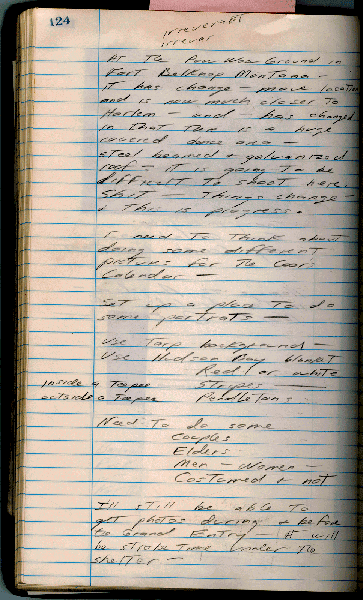 124
irreverent
irrever
At The Pow Wow Ground in
Fort Belknap Montana -
it has change - move location
and is now much closer to
Harlem - and has changed
in That Ther is a huge
covered dance area -
steel beamed + galvanized
roof - it is going to be
difficult To shoot here.
Shit - Things change -
+ This is progress.
I need To Think about
doing some different
pictures for The Coors
Calendar -
Set up a place To do
some portraits -
Use Tarp background -
Use Hudson Bay blanket
Red or white
inside a Teepee stripes
outside a Teepee Pendletons
Need To do some
Couples
Elders
Men - Women -
Costumed + not
I'll still be able To
get photos during + before
The Grand Entry - it will
be strobe Time under The
shelter -